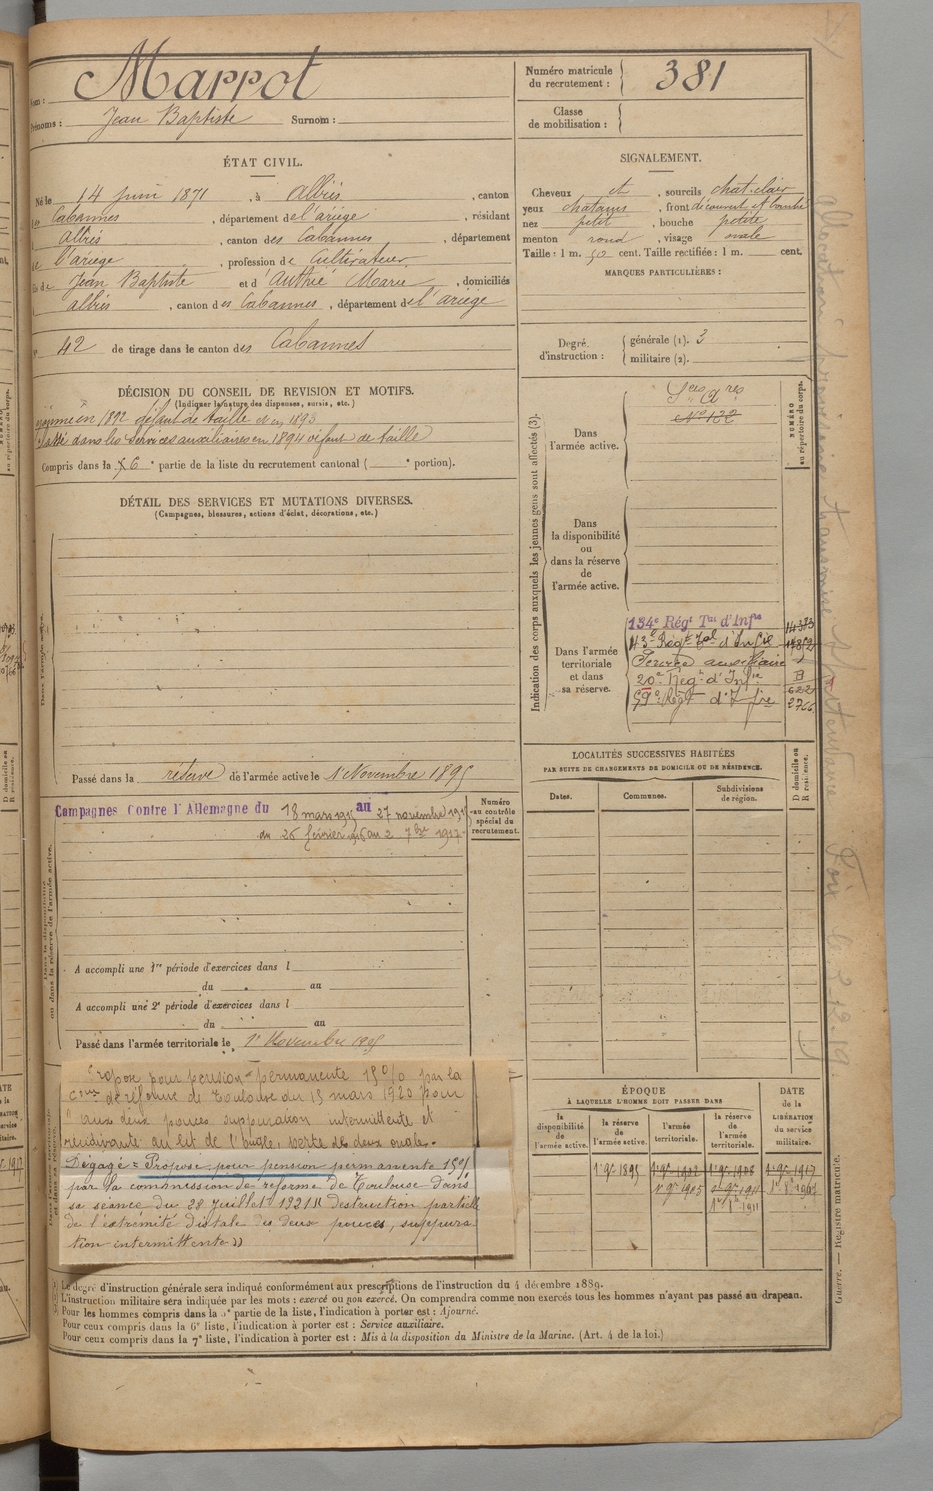 Nom : Marrot
Prénoms : Jean Baptiste Surnom :
Numéro matricule du recrutement : 381
Classe de mobilisation :
ÉTAT CIVIL.
Né le 14 juin 1871, à Albiès, canton
des Cabannes, département de l'ariège, résidant
Albiès, canton des Cabannes, département
de l'ariège, profession de Cultivateur
fils de Jean Baptiste et d'Authié Marie, domiciliés
albiès, canton des Cabannes, département de l'ariège
N° 42 de tirage dans le canton des Cabannes
SIGNALEMENT.
Cheveux et, sourcils chat. clair
yeux chatains, front découvert et bombé
nez petit, bouche petite
menton rond, visage ovale
Taille : 1 m. 50 cent. Taille rectifiée : 1 m. cent.
MARQUES PARTICULIÈRES :
Degré d'instruction : générale (1). 3
militaire (2).
DÉCISION DU CONSEIL DE REVISION ET MOTIFS.
(Indiquer la nature des dispenses, sursis, etc.)
ajourné en 1892 défaut de taille et en 1893
Classé dans les services auxiliaires en 1894 défaut de taille
Compris dans la 6e partie de la liste du recrutement cantonal ( e portion).
DÉTAIL DES SERVICES ET MUTATIONS DIVERSES.
(Campagnes, blessures, actions d'éclat, décorations, etc.)
Dans l'armée active.
Passé dans la réserve de l'armée active le 1 Novembre 1895
Indication des corps auxquels les jeunes gens sont affectés (3).
NUMÉRO au répertoire du corps.
Dans l'armée active.
Sces aires
N° 132
Dans la disponibilité ou dans la réserve de l'armée active.
Dans l'armée territoriale et dans sa réserve.
134e Régt Tal d'Infie 14383
43e Régt Tal d'Infie
Service auxiliaire
20e Régt d'Infie
59e Régt d'Infie
LOCALITÉS SUCCESSIVES HABITÉES
PAR SUITE DE CHANGEMENTS DE DOMICILE OU DE RÉSIDENCE.
Dates. Communes. Subdivisions de région. D domicile ou R résidence.
Campagnes Contre l'Allemagne du 18 mars 1915 au 27 novembre 1915
du 26 février 1916 au 2 7bre 1917
Numéro au contrôle spécial du recrutement.
Dans la disponibilité ou dans la réserve de l'armée active.
A accompli une 1re période d'exercices dans l
du au
A accompli une 2e période d'exercices dans l
du au
Passé dans l'armée territoriale le 1er Novembre 1905
Proposé pour pension permanente 15% par la
Con de réforme de Toulouse du 15 mars 1920 pour
aux deux pouces suppuration intermittente et
récidivante au lit de l'ongle, perte des deux ongles.
Dégagé = Proposé pour pension permanente 15%
par la commission de réforme de Toulouse dans
sa séance du 28 Juillet 1921 « Destruction partielle
de l'extrémité distale des deux pouces, suppura
tion intermittente »
ÉPOQUE
À LAQUELLE L'HOMME DOIT PASSER DANS
la disponibilité de l'armée active. la réserve de l'armée active. l'armée territoriale. la réserve de l'armée territoriale. DATE de la LIBÉRATION du service militaire.
1er 9bre 1895 1er 9bre 1908 1er 9bre 1917
1er 9bre 1905 1911
Le degré d'instruction générale sera indiqué conformément aux prescriptions de l'instruction du 4 décembre 1889.
L'instruction militaire sera indiquée par les mots : exercé ou non exercé. On comprendra comme non exercés tous les hommes n'ayant pas passé au drapeau.
Pour les hommes compris dans la 5e partie de la liste, l'indication à porter est : Ajourné.
Pour ceux compris dans la 6e liste, l'indication à porter est : Service auxiliaire.
Pour ceux compris dans la 7e liste, l'indication à porter est : Mis à la disposition du Ministre de la Marine. (Art. 4 de la loi.)
Guerre. — Registre matricule.